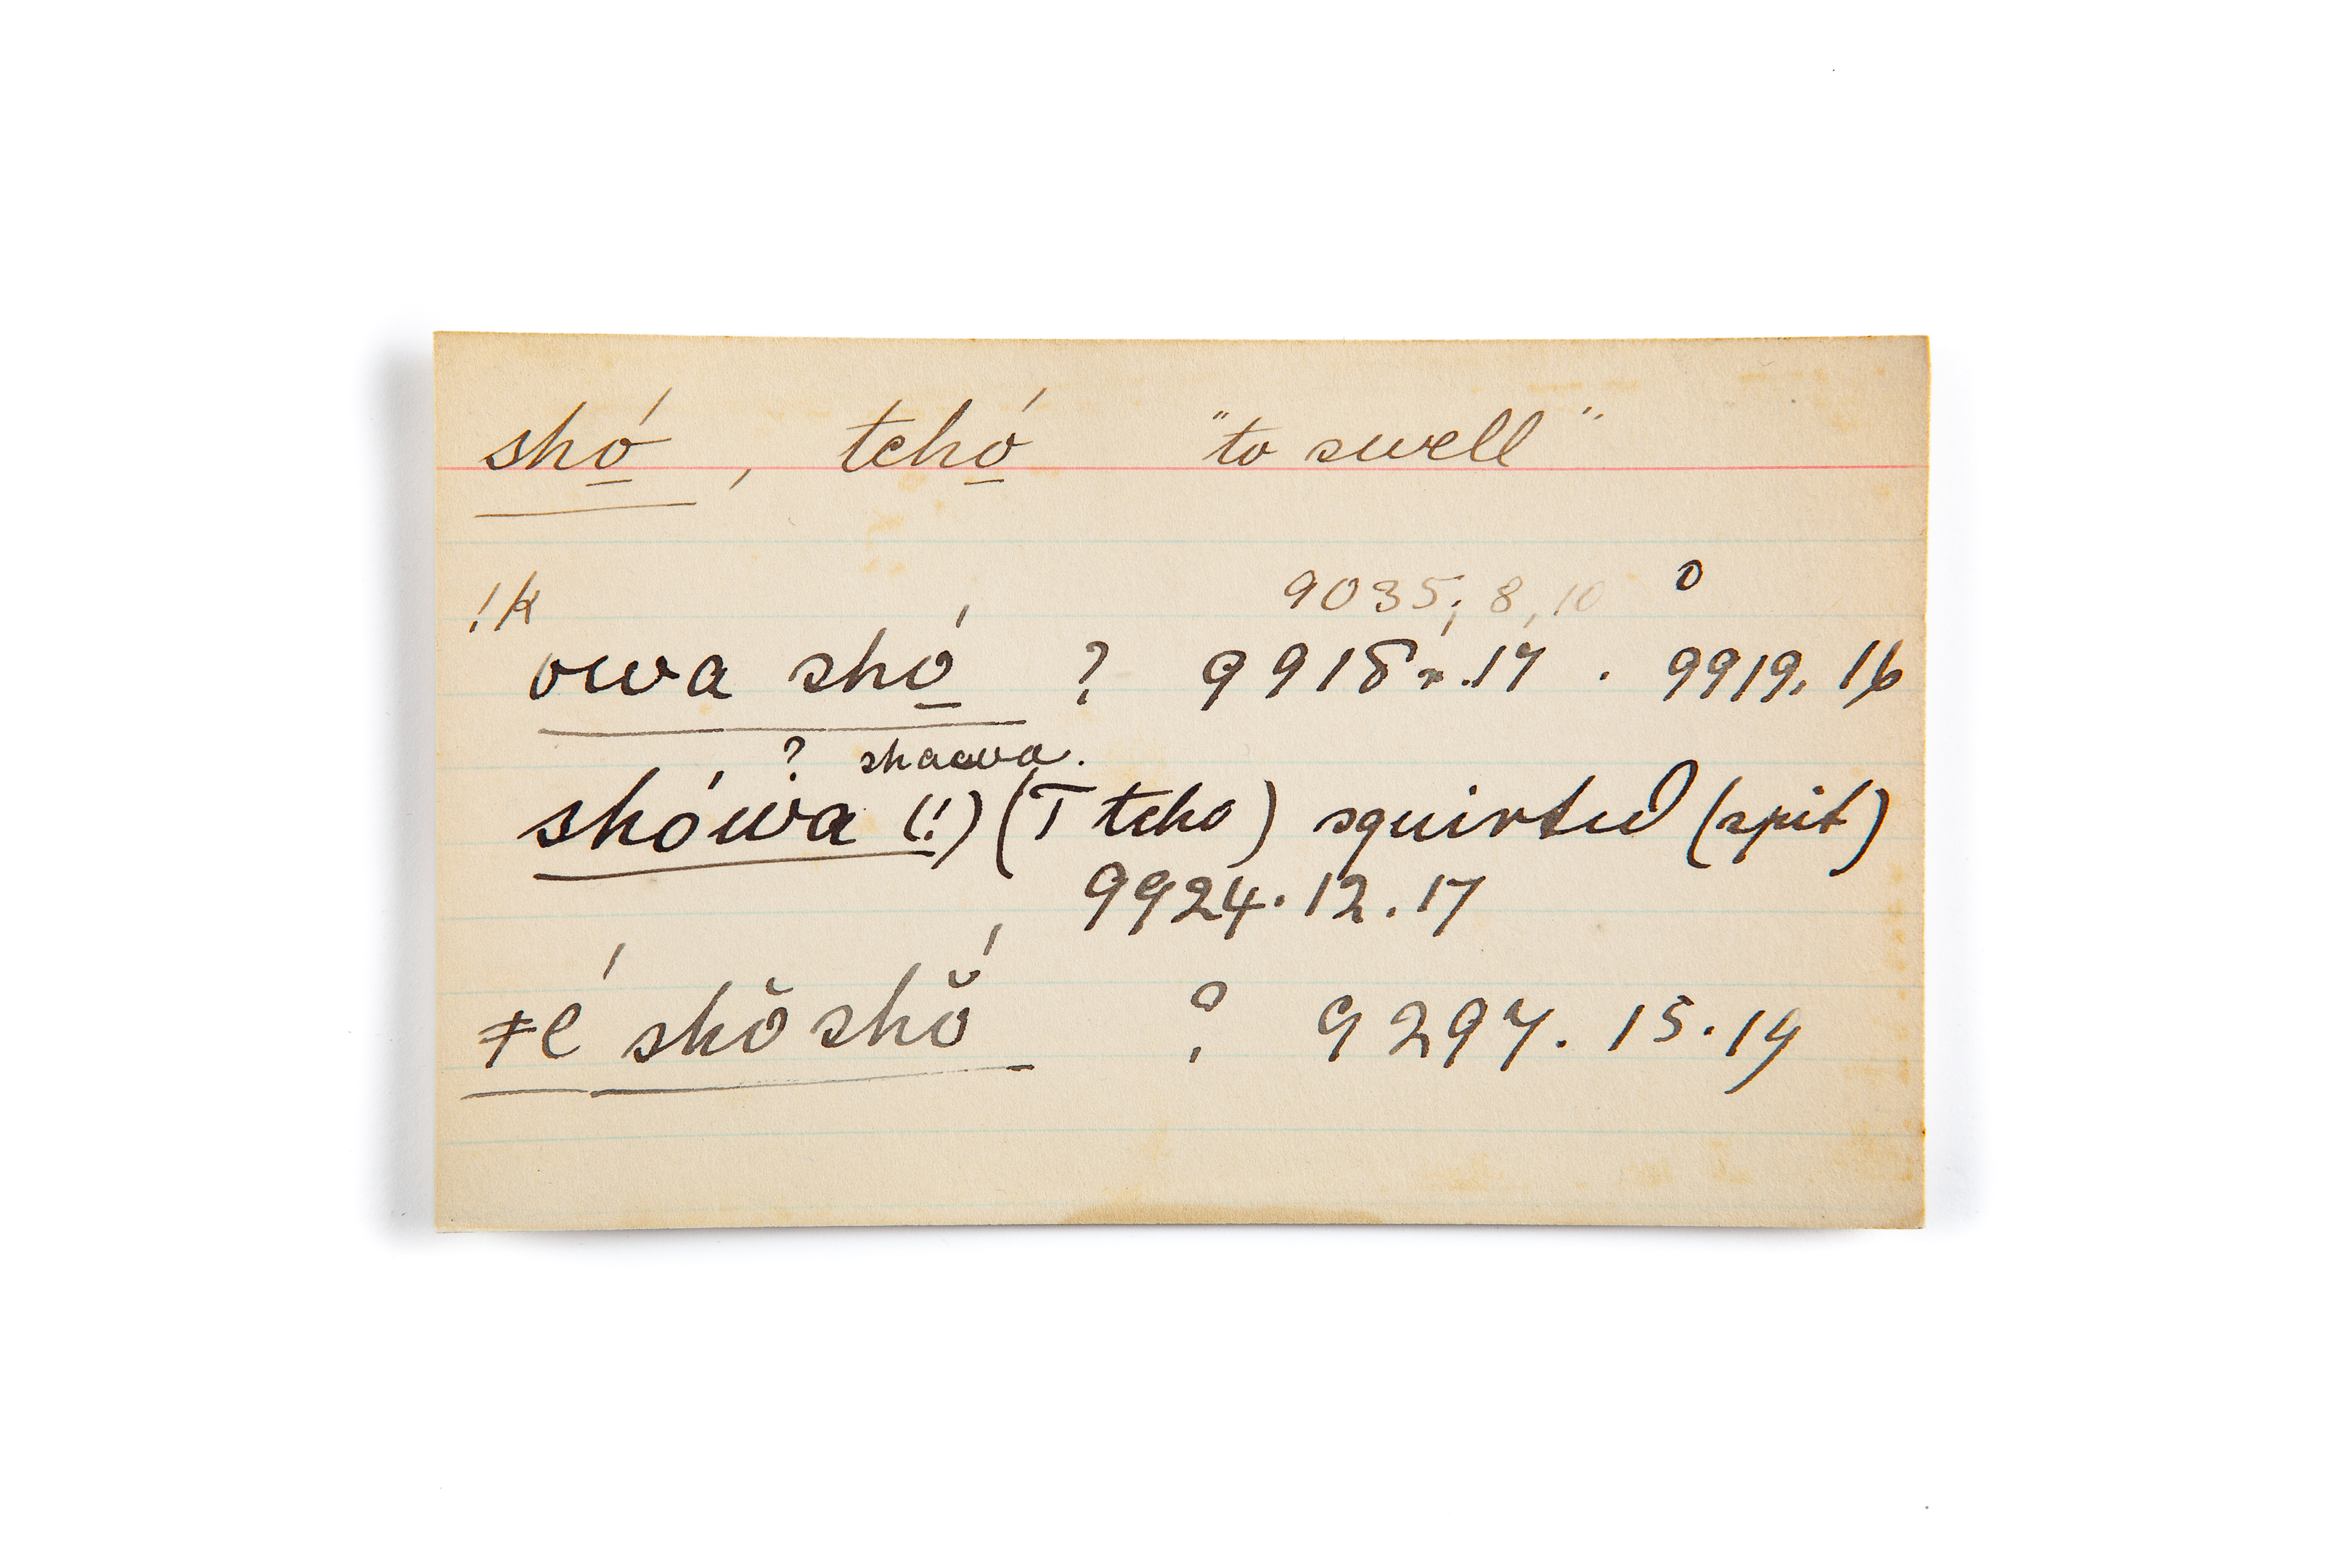 shó̱, tchó̱ "to swell"
!k 9035; 8, 10 0
owa shó̱ ? 9918. .17 . 9919. 16
? shaawa.
shówa (!) (T tcho) squirted (spit)
9924. 12. 17
ǂé shŏshŏ́ ? 9297. 15. 19